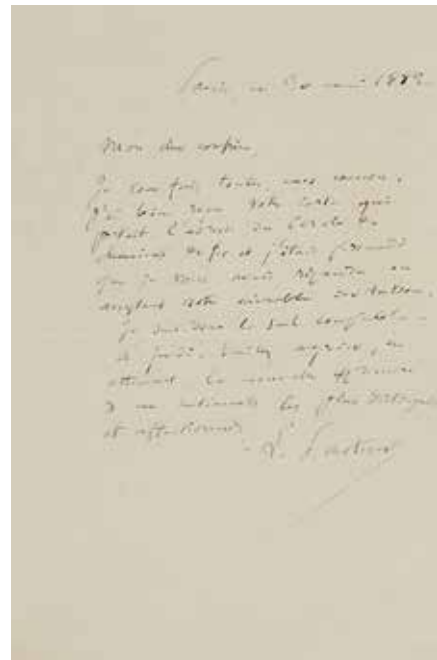 Paris, ce 30 mai 1882
Mon cher confrère,
Je vous fais toutes mes excuses.
J'ai bien reçu votre carte qui
portait l'adresse du Cercle des
chemins de fer et j'étais persuadé
que je vous avais répondu en
acceptant votre aimable invitation.
Je
jeudi. Veuillez agréer, en
attendant, la nouvelle assurance
de mes sentiments les plus distingués
et affectionnés
L. Pasteur